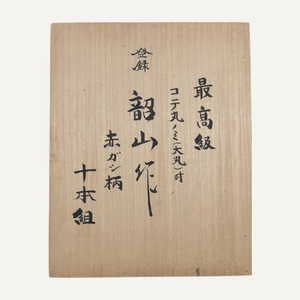 最高級
コテ丸ノミ(大丸)付
登録
韶山作
赤ガシ柄
十本組